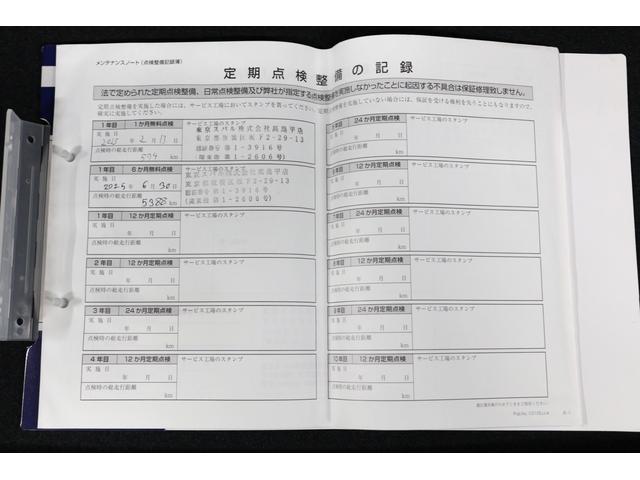 メンテナンスノート（点検整備記録簿）
定期点検整備の記録
法で定められた定期点検整備、日常点検整備及び弊社が指定する点検整備を実施しなかったことに起因する不具合は保証修理致しません。
定期点検整備を実施した場合には、サービス工場においてスタンプを貰ってください。
確実に実施してください。
1年目 1か月無料点検 サービス工場のスタンプ
実施日
2025年 2月 17日
点検時の総走行距離
594 km
東京スバル株式会社高島平店
東京都板橋区坂下2-29-13
認証番号 第1-3916号
1年目 6か月無料点検 サービス工場のスタンプ
実施日
2025年 6月 30日
点検時の総走行距離
5388 km
東京スバル株式会社高島平店
東京都板橋区坂下2-29-13
認証番号 第1-3916号
1年目 12か月定期点検 サービス工場のスタンプ
実施日
年 月 日
点検時の総走行距離
km
2年目 12か月定期点検 サービス工場のスタンプ
実施日
年 月 日
点検時の総走行距離
km
3年目 24か月定期点検 サービス工場のスタンプ
実施日
年 月 日
点検時の総走行距離
km
4年目 12か月定期点検 サービス工場のスタンプ
実施日
年 月 日
点検時の総走行距離
km
24か月定期点検 サービス工場のスタンプ
実施日
年 月 日
点検時の総走行距離
km
12か月定期点検 サービス工場のスタンプ
実施日
年 月 日
点検時の総走行距離
km
24か月定期点検 サービス工場のスタンプ
実施日
年 月 日
点検時の総走行距離
km
12か月定期点検 サービス工場のスタンプ
実施日
年 月 日
点検時の総走行距離
km
9年目 24か月定期点検 サービス工場のスタンプ
実施日
年 月 日
点検時の総走行距離
km
10年目 12か月定期点検 サービス工場のスタンプ
実施日
年 月 日
点検時の総走行距離
km